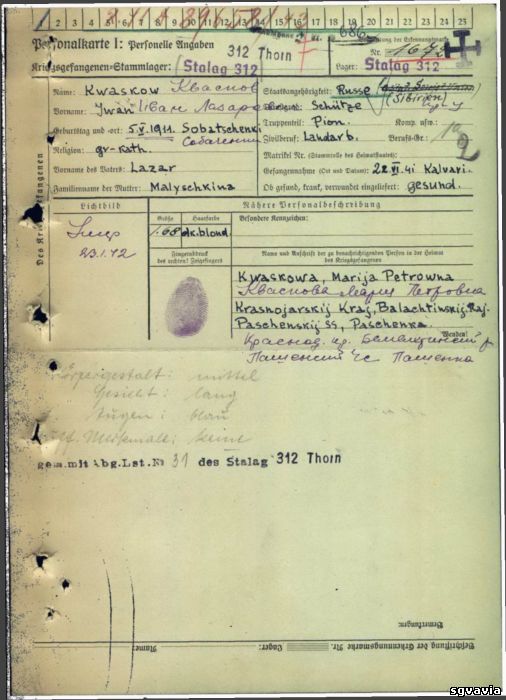 1 2 3 4 5 6 7 8 9 10 11 12 13 14 15 16 17 18 19 20 21 22 23 24 25
Personalkarte I: Personelle Angaben 312 Thorn
Kriegsgefangenen-Stammlager: Stalag 312
der Erkennungsmarke
Nr.
Lager: Stalag 312
Des Kriegsgefangenen
Name: Kwaskow Квасков
Vorname: Iwan Иван
Geburtstag und -ort: 5.V.1911. Sobatschenki
Religion: gr-kath.
Vorname des Vaters: Lazar
Familienname der Mutter: Malyschkina
Staatsangehörigkeit: Russe
(Sibirien)
Schütze
Truppenteil: Pion. Komp. usw.:
Zivilberuf: Landarb. Berufs-Gr.:
Matrikel Nr. (Stammrolle des Heimatstaates):
Gefangennahme (Ort und Datum): 22.VI.41 Kalvari.
Ob gesund, krank, verwundet eingeliefert: gesund.
Lichtbild
23.1.42
Nähere Personalbeschreibung
Größe Haarfarbe Besondere Kennzeichen:
1.68 dk.blond.
Fingerabdruck
des rechten! Zeigefingers
Name und Anschrift der zu benachrichtigenden Person in der Heimat
des Kriegsgefangenen
Kwaskowa, Marija Petrowna
Кваскова Мария Петровна
Krasnojarskij Kraj, Balachtinskij Raj.
Paschenskij SS, Paschenka
Wenden!
Пашенский Пашенка
Körpergestalt: mittel
Gesicht: lang
Augen: blau
Merkmale: keine
gem.mit Abg.Lst.№ 31 des Stalag 312 Thorn
Bemerkungen:
Beschriftung der Erkennungsmarke Nr. Lager:
Name:
sgvavia